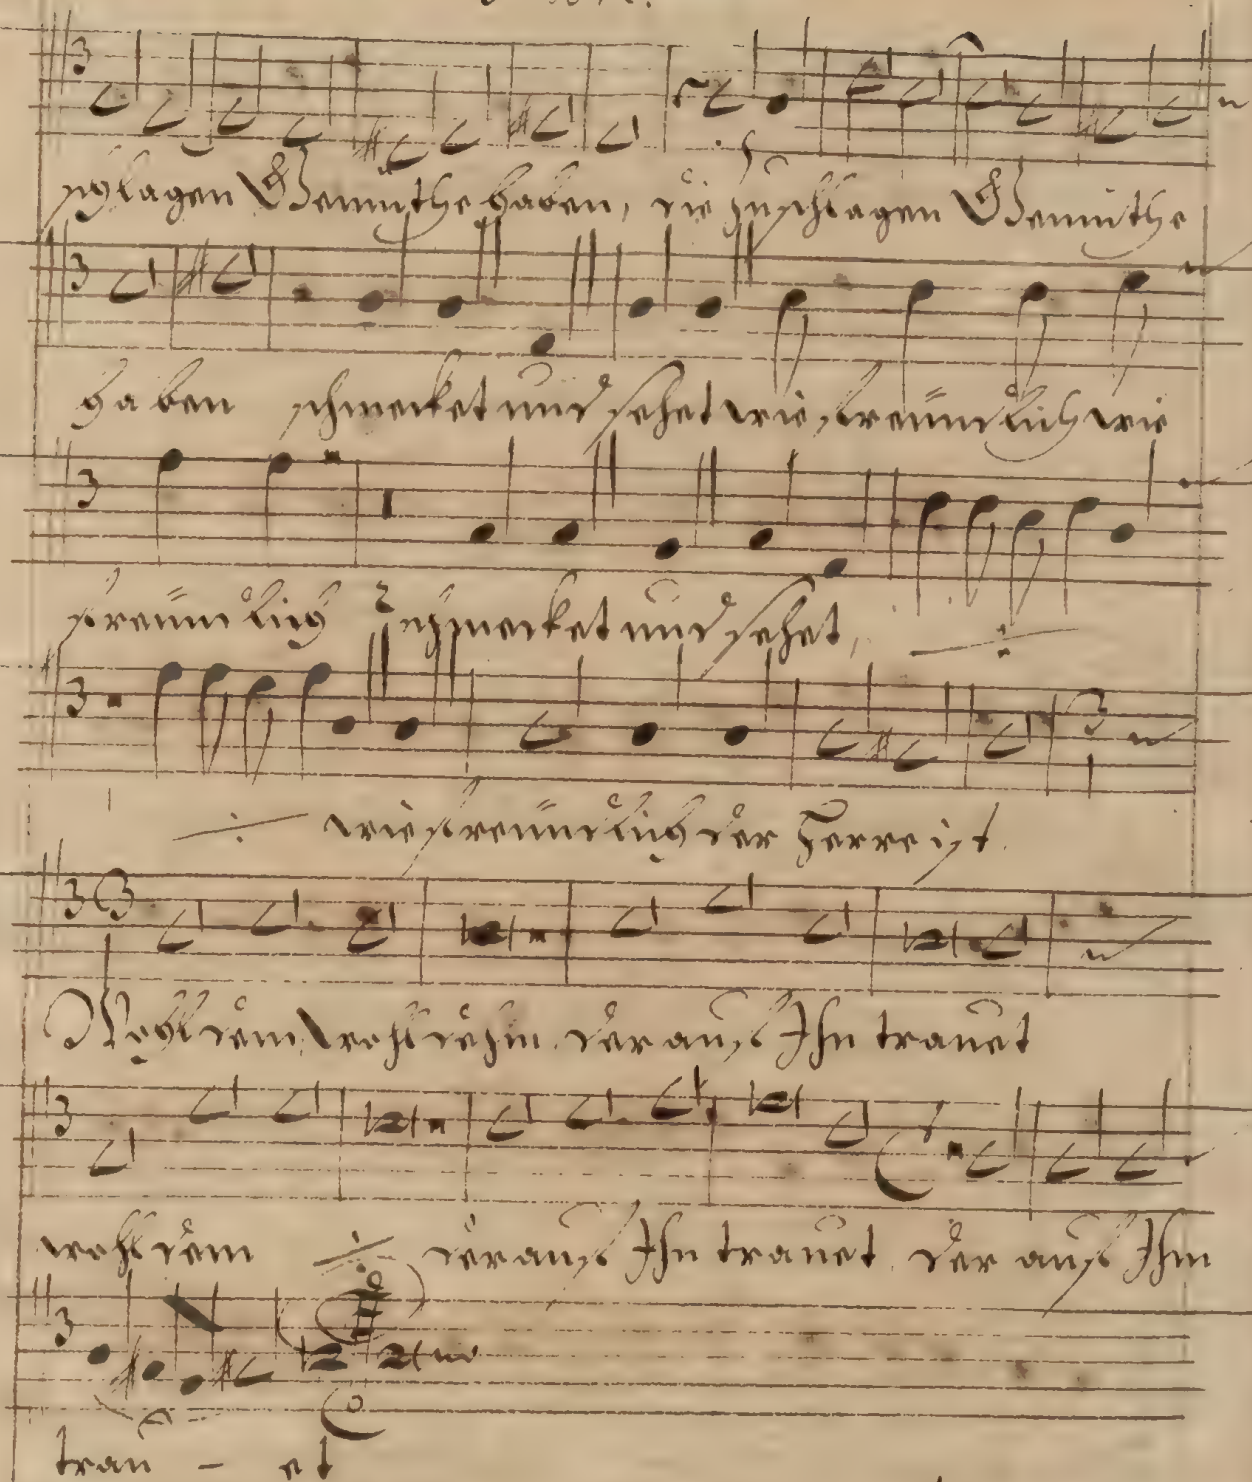 schlagen Gemüthe haben, die zuschlagen Gemüthe
haben schmecket und sehet wie freundlich wie
freundlich schmecket und sehet,
wie freundlich der Herre ist.
Wohl dem wohl dehm der auf Ihn trauet
wohl dem der auf Ihn trauet der auf Ihm
trau - et